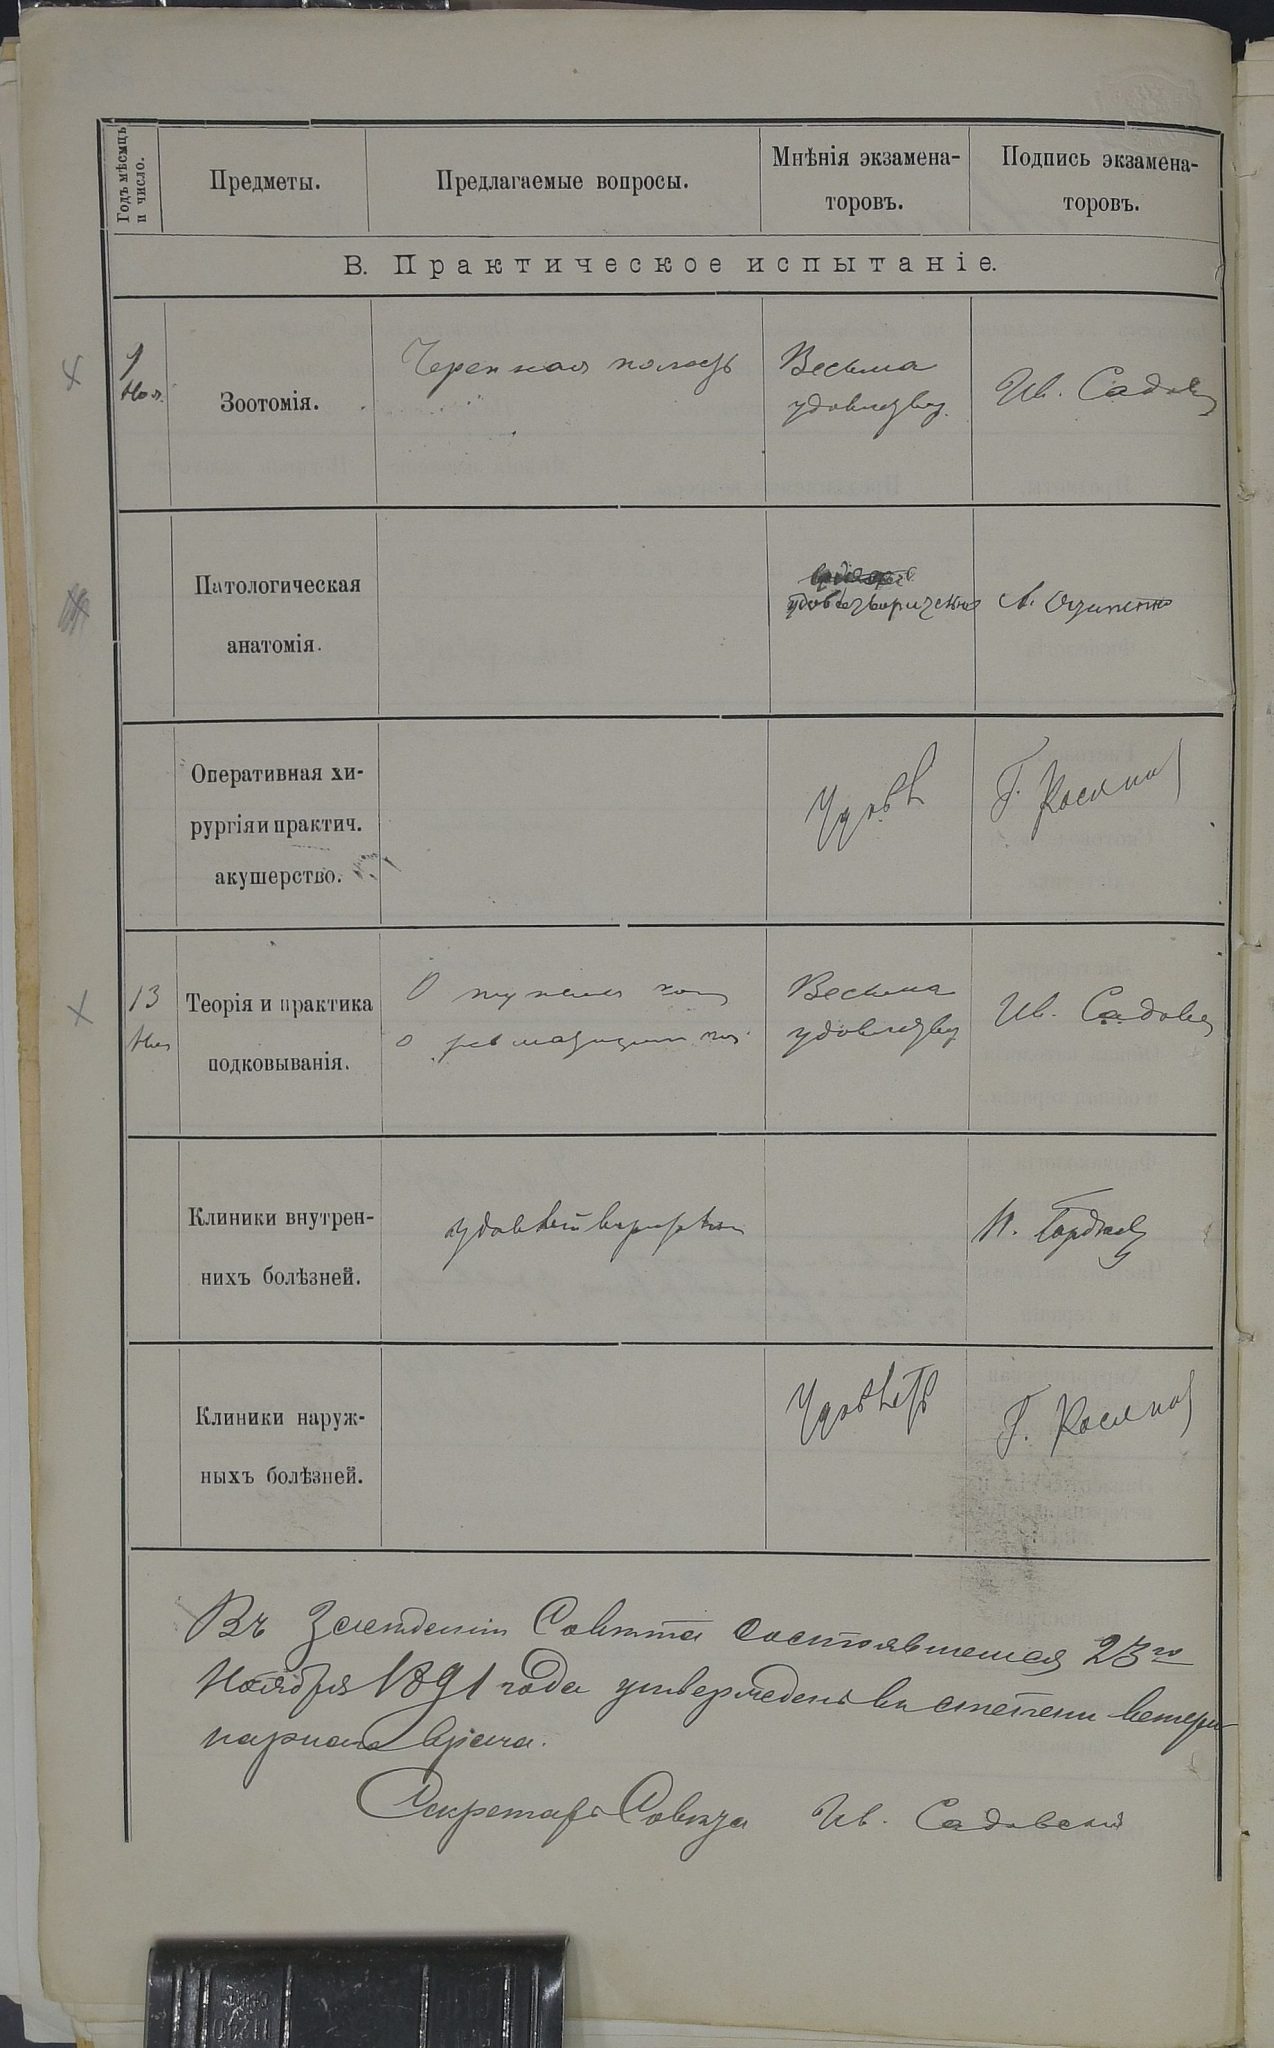 Годъ мѣсяцъ
и число.
Предметы.
Предлагаемые вопросы.
Мнѣнія экзамена-
торовъ.
Подпись экзамена-
торовъ.
В. Практическое испытаніе.
1
Ноя.
Зоотомія.
Черепная полость
Весьма
удовлетвор.
Ив. Садовс
Патологическая
анатомія.
удовлетворительно
Оперативная хи-
рургія и практич.
акушерство.
Удовл
Г.
13
Ноя
Теорія и практика
подковыванія.
О
о ревматизм
Весьма
удовлетвор
Ив. Садовс
Клиники внутрен-
нихъ болѣзней.
удовлетворительно
Клиники наруж-
ныхъ болѣзней.
Удовлетв
Г.
Въ Засѣданіи Совѣта состоявшемся 23го
Ноября 1891 года утвержденъ въ степени ветери
нарнаго врача.
Секретарь Совѣта Ив. Садовскій